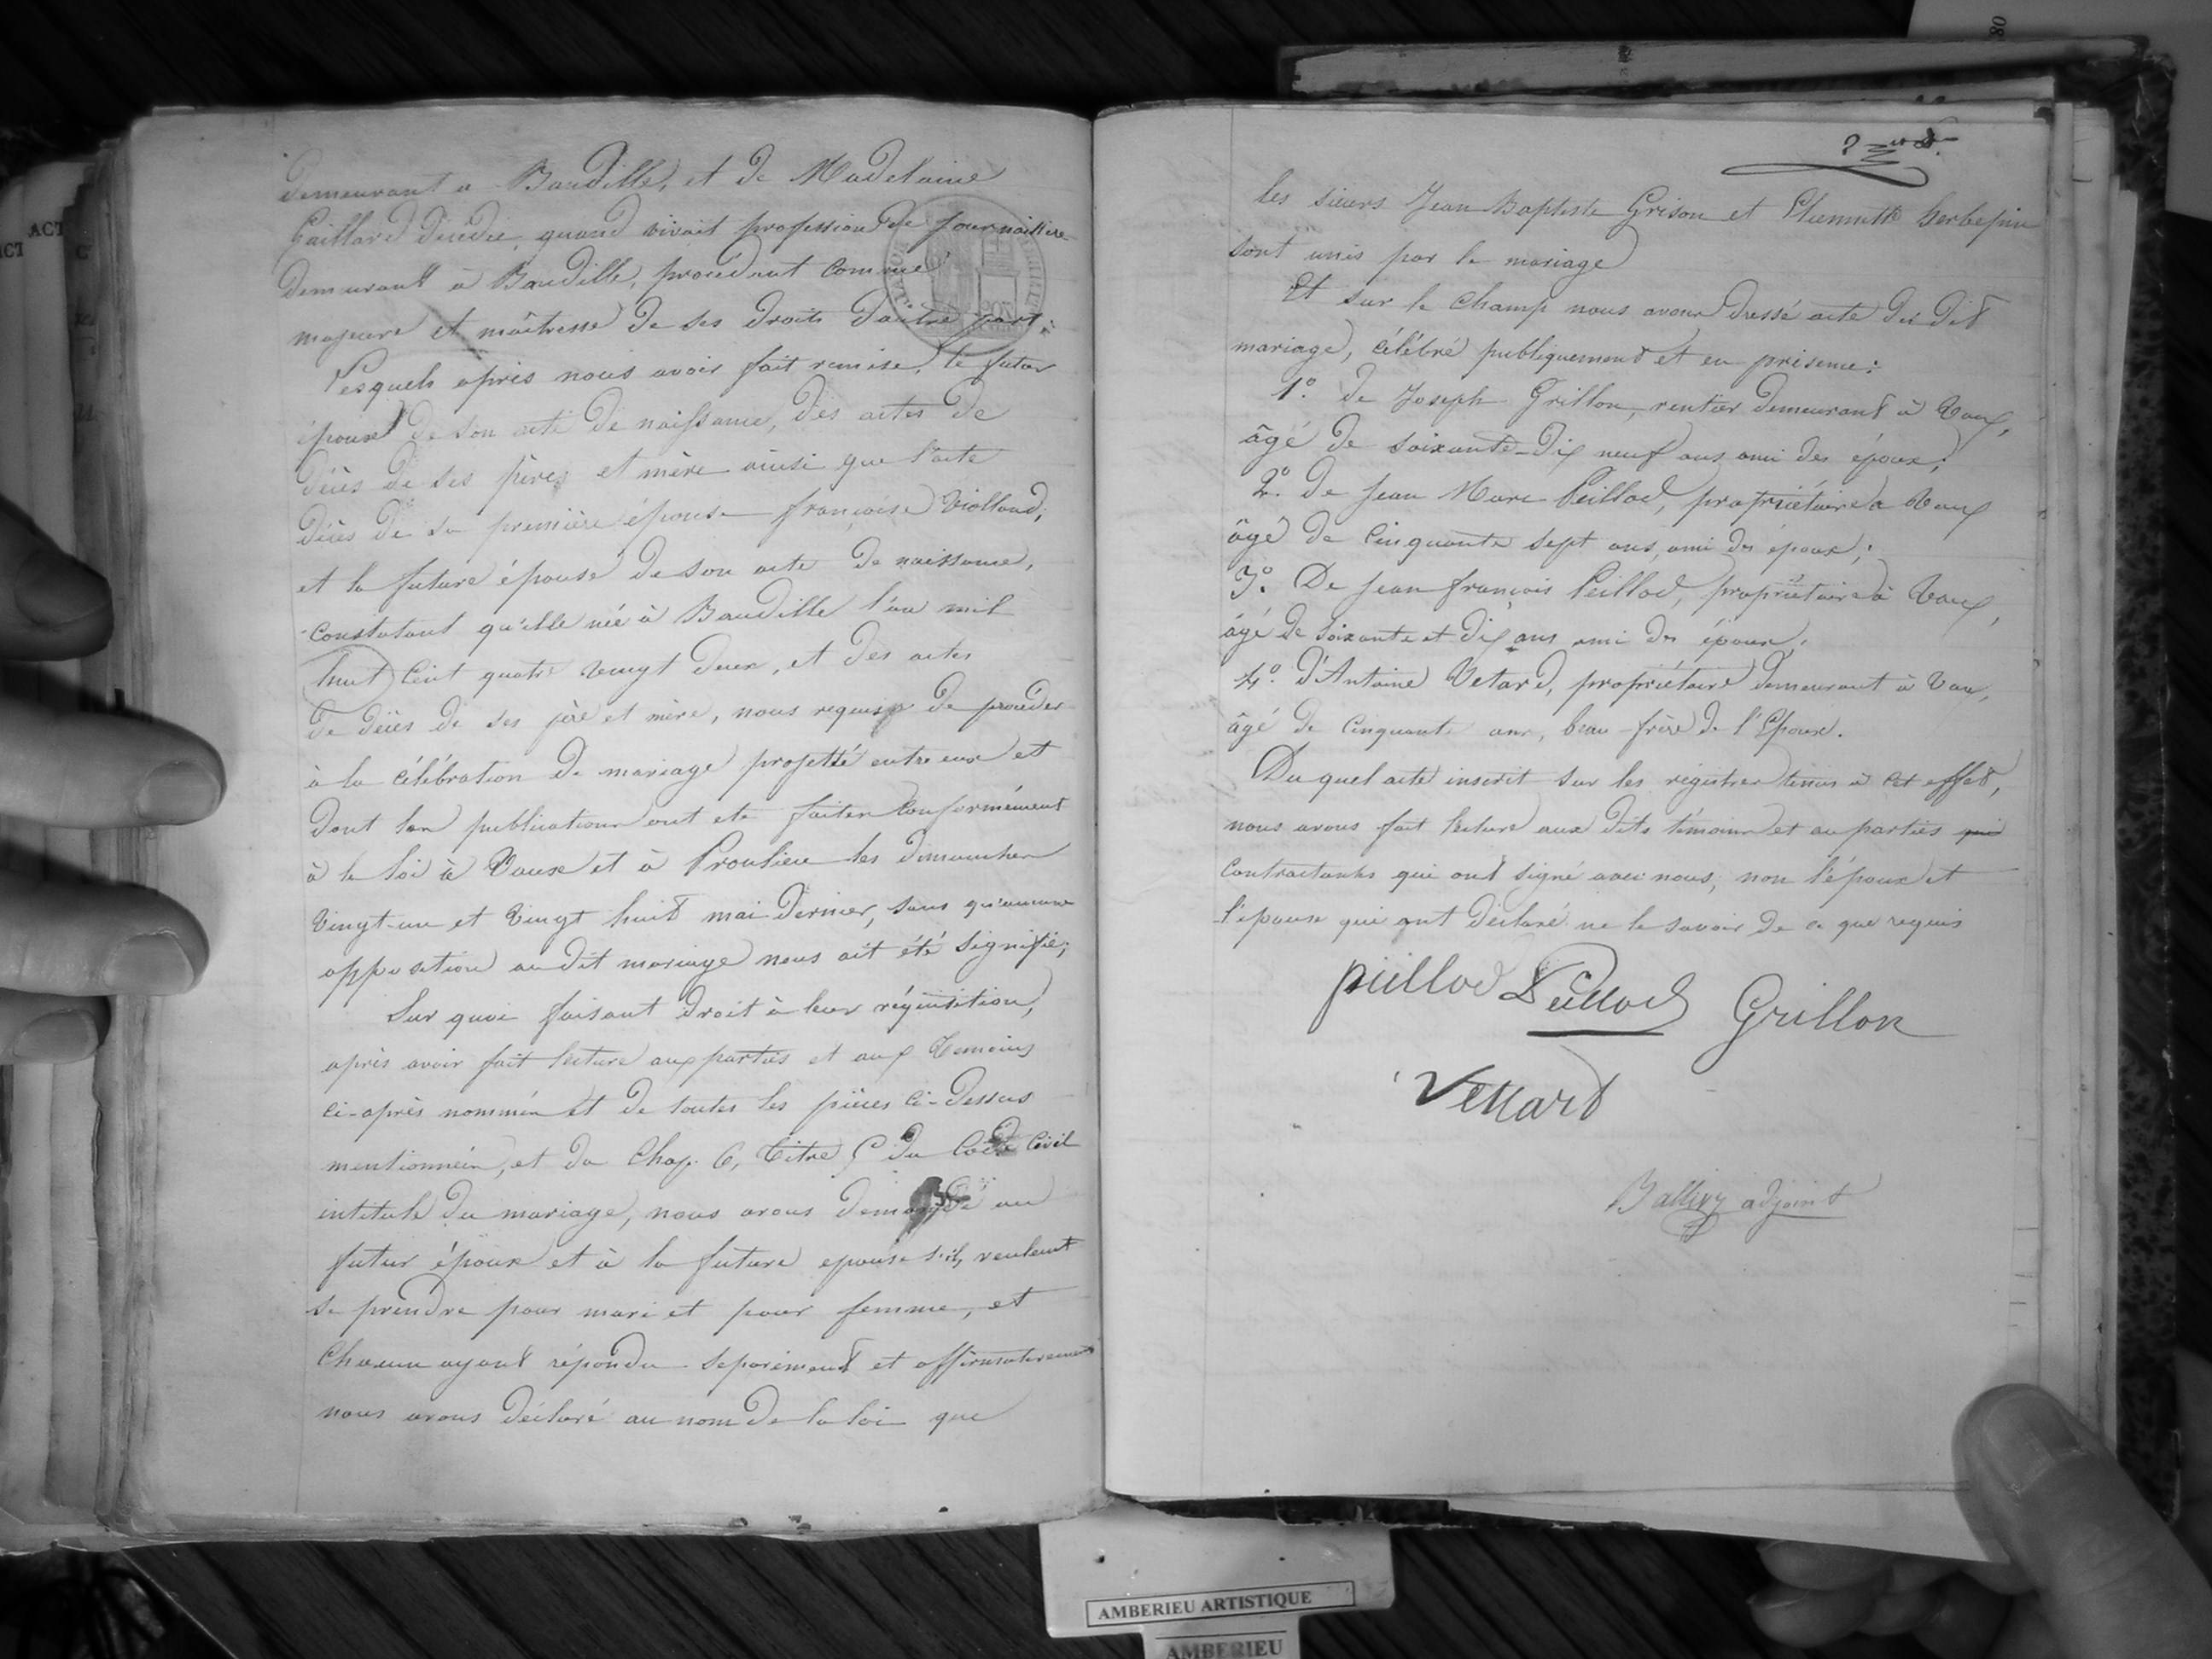 demeurant a Baudille, et de Madelaine
Gaillard décédée, quand vivait profession de journalière
demeurant à Baudille, procédant comme
majeure et maîtresse de ses droits d'autre part.
Lesquels après nous avoir fait remise, le futur
époux de son acte de naissance, des actes de
décès de ses père et mère ainsi que l'acte
décès de sa première épouse françoise Violland,
et la future épouse de son acte de naissance,
constatant qu'elle née à Baudille l'an mil
huit cent quatre vingt deux, et des actes
de décès de ses père et mère, nous requis de procéder
à la célébration de mariage projetté entre eux et
dont les publications ont eté faites conformément
à la loi à Vaux et à Proulieu les dimanches
vingt-un et vingt huit mai dernier, sans qu'aucune
opposition audit mariage nous ait été signifié;
Sur quoi faisant droit à leur réquisition,
après avoir fait lecture aux parties et aux temoins
ci-après nommés et de toutes les pièces ci-dessus
mentionnées, et du Chap. 6, titre 5 du Code Civil
intitulé du mariage, nous avons demandé au
futur époux et à la future epouse s'ils veulent
se prendre pour mari et pour femme, et
Chacun ayant répondu séparément et affirmativement
nous avons déclaré au nom de la loi que
les sieurs Jean Baptiste Grison et Pierrette Herbepin
sont unis par le mariage
Et sur le champ nous avons dressé acte du dit
mariage, célébré publiquement et en présence:
1º. de Joseph Grillon, rentier demeurant à Vaux,
âgé de soixante-dix neuf ans ami des époux;
2º. de Jean Marc Peillod, propriétaire a Vaux
âgé de cinquante sept ans, ami des époux;
3º. De Jean françois Peillod, propriétaire à Vaux,
âgé de soixante et dix ans ami des époux;
4º. d'Antoine Vetard, propriétaire demeurant à Vaux,
âgé de cinquante ans, beau-frère de l'Epoux.
Du quel acte inscrit sur les régistres tenus à cet effet,
nous avons fait lecture aux dits témoins et au parties qui
contractantes qui ont signé avec nous, non l'époux et
l'épouse qui ont déclaré ne le savoir de ce que requis
peillod Peillod Grillon
Vettard
Ballivy adjoint
AMBERIEU ARTISTIQUE
AMBERIEU